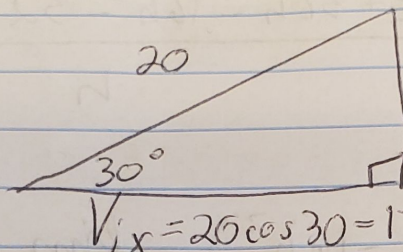 20
30°
Vix = 20 cos 30 = 1